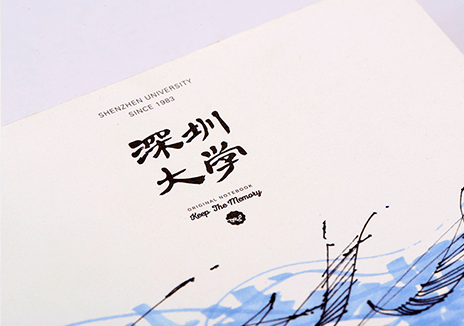 SHENZHEN UNIVERSITY
SINCE 1983
深圳
大学
ORIGINAL NOTEBOOK
Keep The Memory